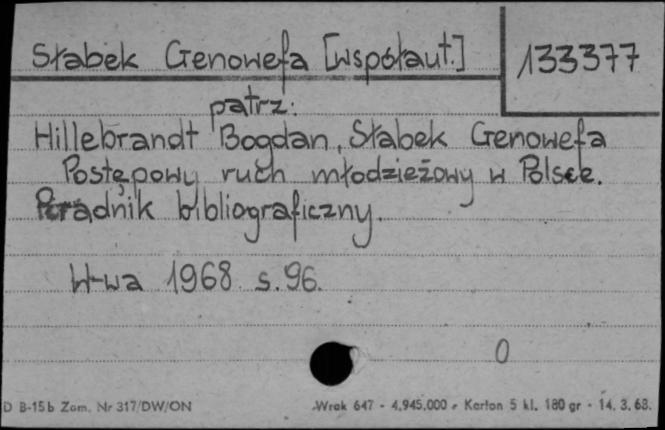 Słabek Genowefa [współaut.] 133377
patrz:
Hillebrandt Bogdan, Słabek Genowefa
Postępowy ruch młodzieżowy w Polsce.
Poradnik bibliograficzny.
W-wa 1968 s. 96.
0
D B-15b Zam. Nr 317/DW/ON Wrak 647 - 4.945.000 - Karton 5 kl. 180 gr - 14. 3. 68.